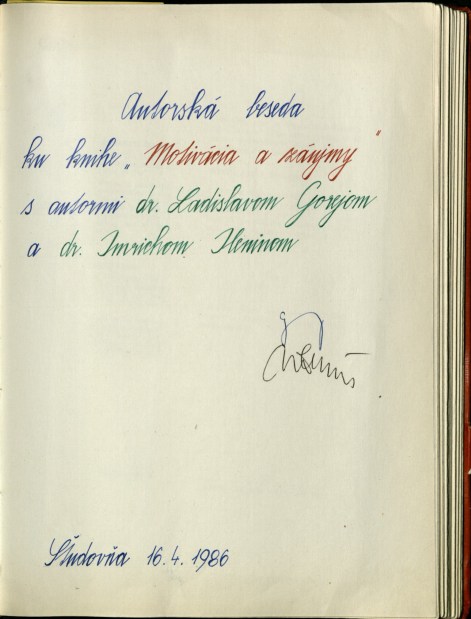 Autorská beseda
ku knihe „Motivácia a záujmy"
s autormi dr. Ladislavom Gorejom
a dr. Imrichom Heninom
Študovňa 16.4. 1986